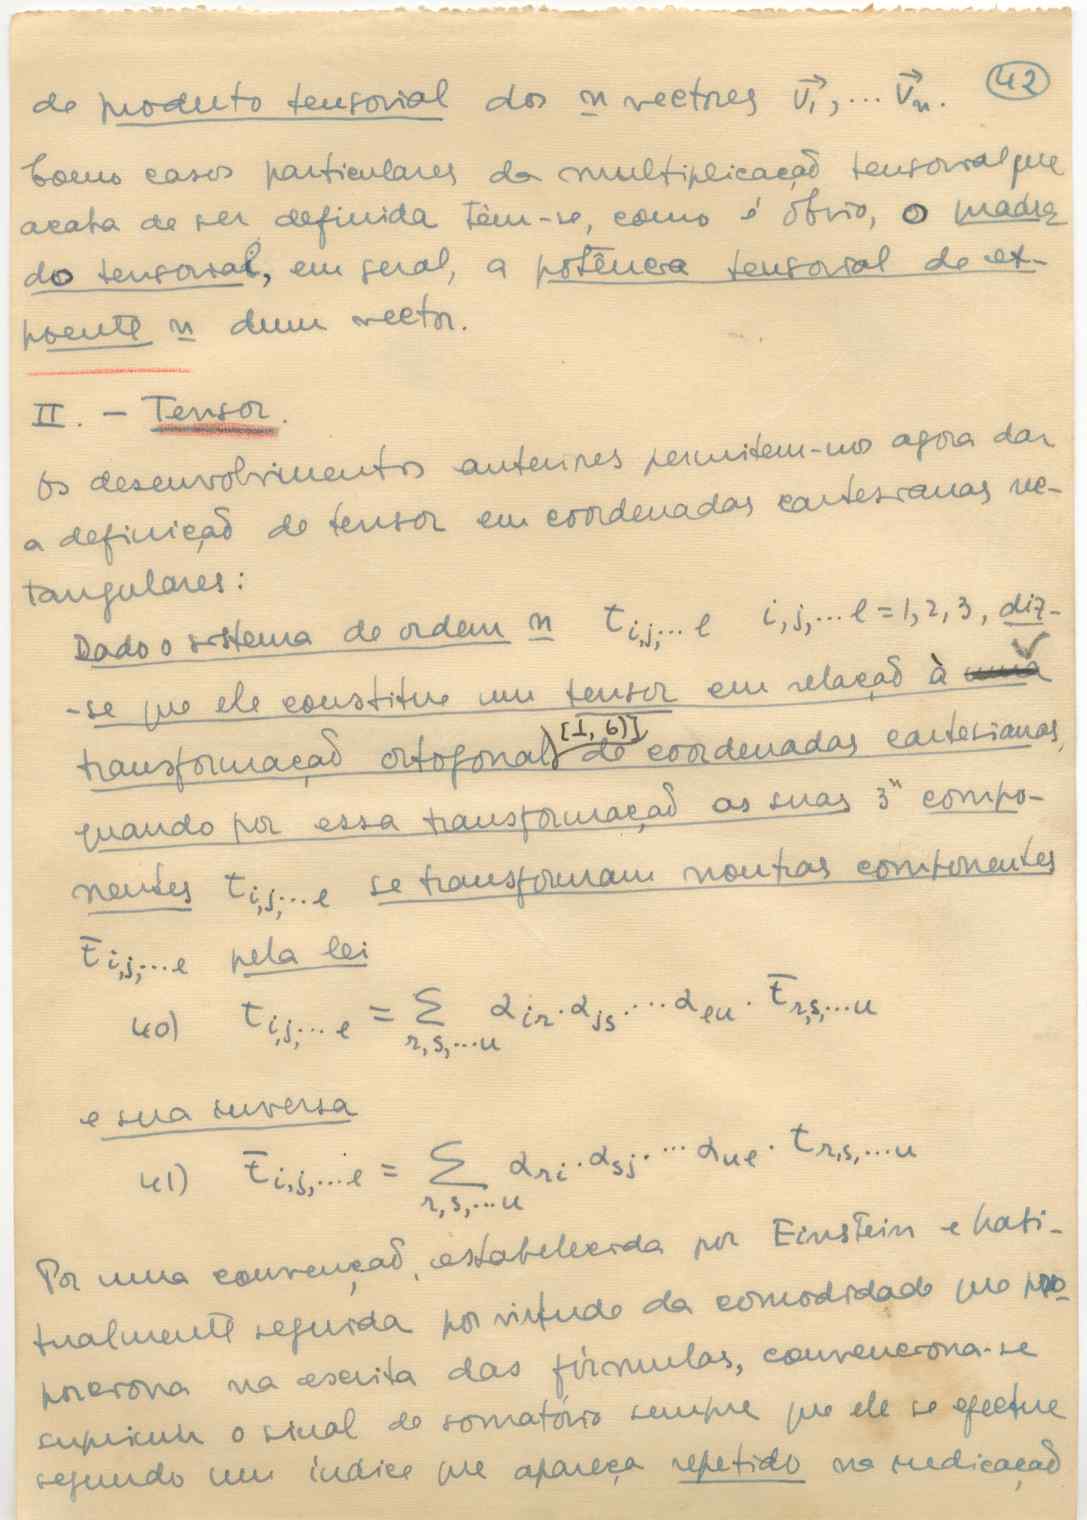 42
de produto tensorial dos n vectores v⃗₁, ... v⃗ₙ.
Como casos particulares da multiplicação tensorial que
acaba de ser definida têm-se, como é óbvio, o quadra
do tensorial, em geral, a potência tensorial de ex-
poente n dum vector.
II. - Tensor.
Os desenvolvimentos anteriores permitem-nos agora dar
a definição de tensor em coordenadas cartesianas rec-
tangulares:
Dado o sistema de ordem n t i,j,...l i,j,...l = 1,2,3, diz-
-se que ele constitue um tensor em relação à
transformação ortogonal [1, 6)] de coordenadas cartesianas,
quando por essa transformação as suas 3ⁿ compo-
nentes t i,j,...l se transformam noutras componentes
t̄ i,j,...l pela lei
40) t i,j,...l = Σ r,s,...u α ir · α js · ... α lu · t̄ r,s,...u
e sua inversa
41) t̄ i,j,...l = Σ r,s,...u α ri · α sj · ... α ul · t r,s,...u
Por uma convenção, estabelecida por Einstein e habi-
tualmente seguida por virtude da comodidade que pro
porciona na escrita das fórmulas, convenciona-se
suprimir o sinal de somatório sempre que ele se efectue
segundo um índice que apareça repetido na indicação